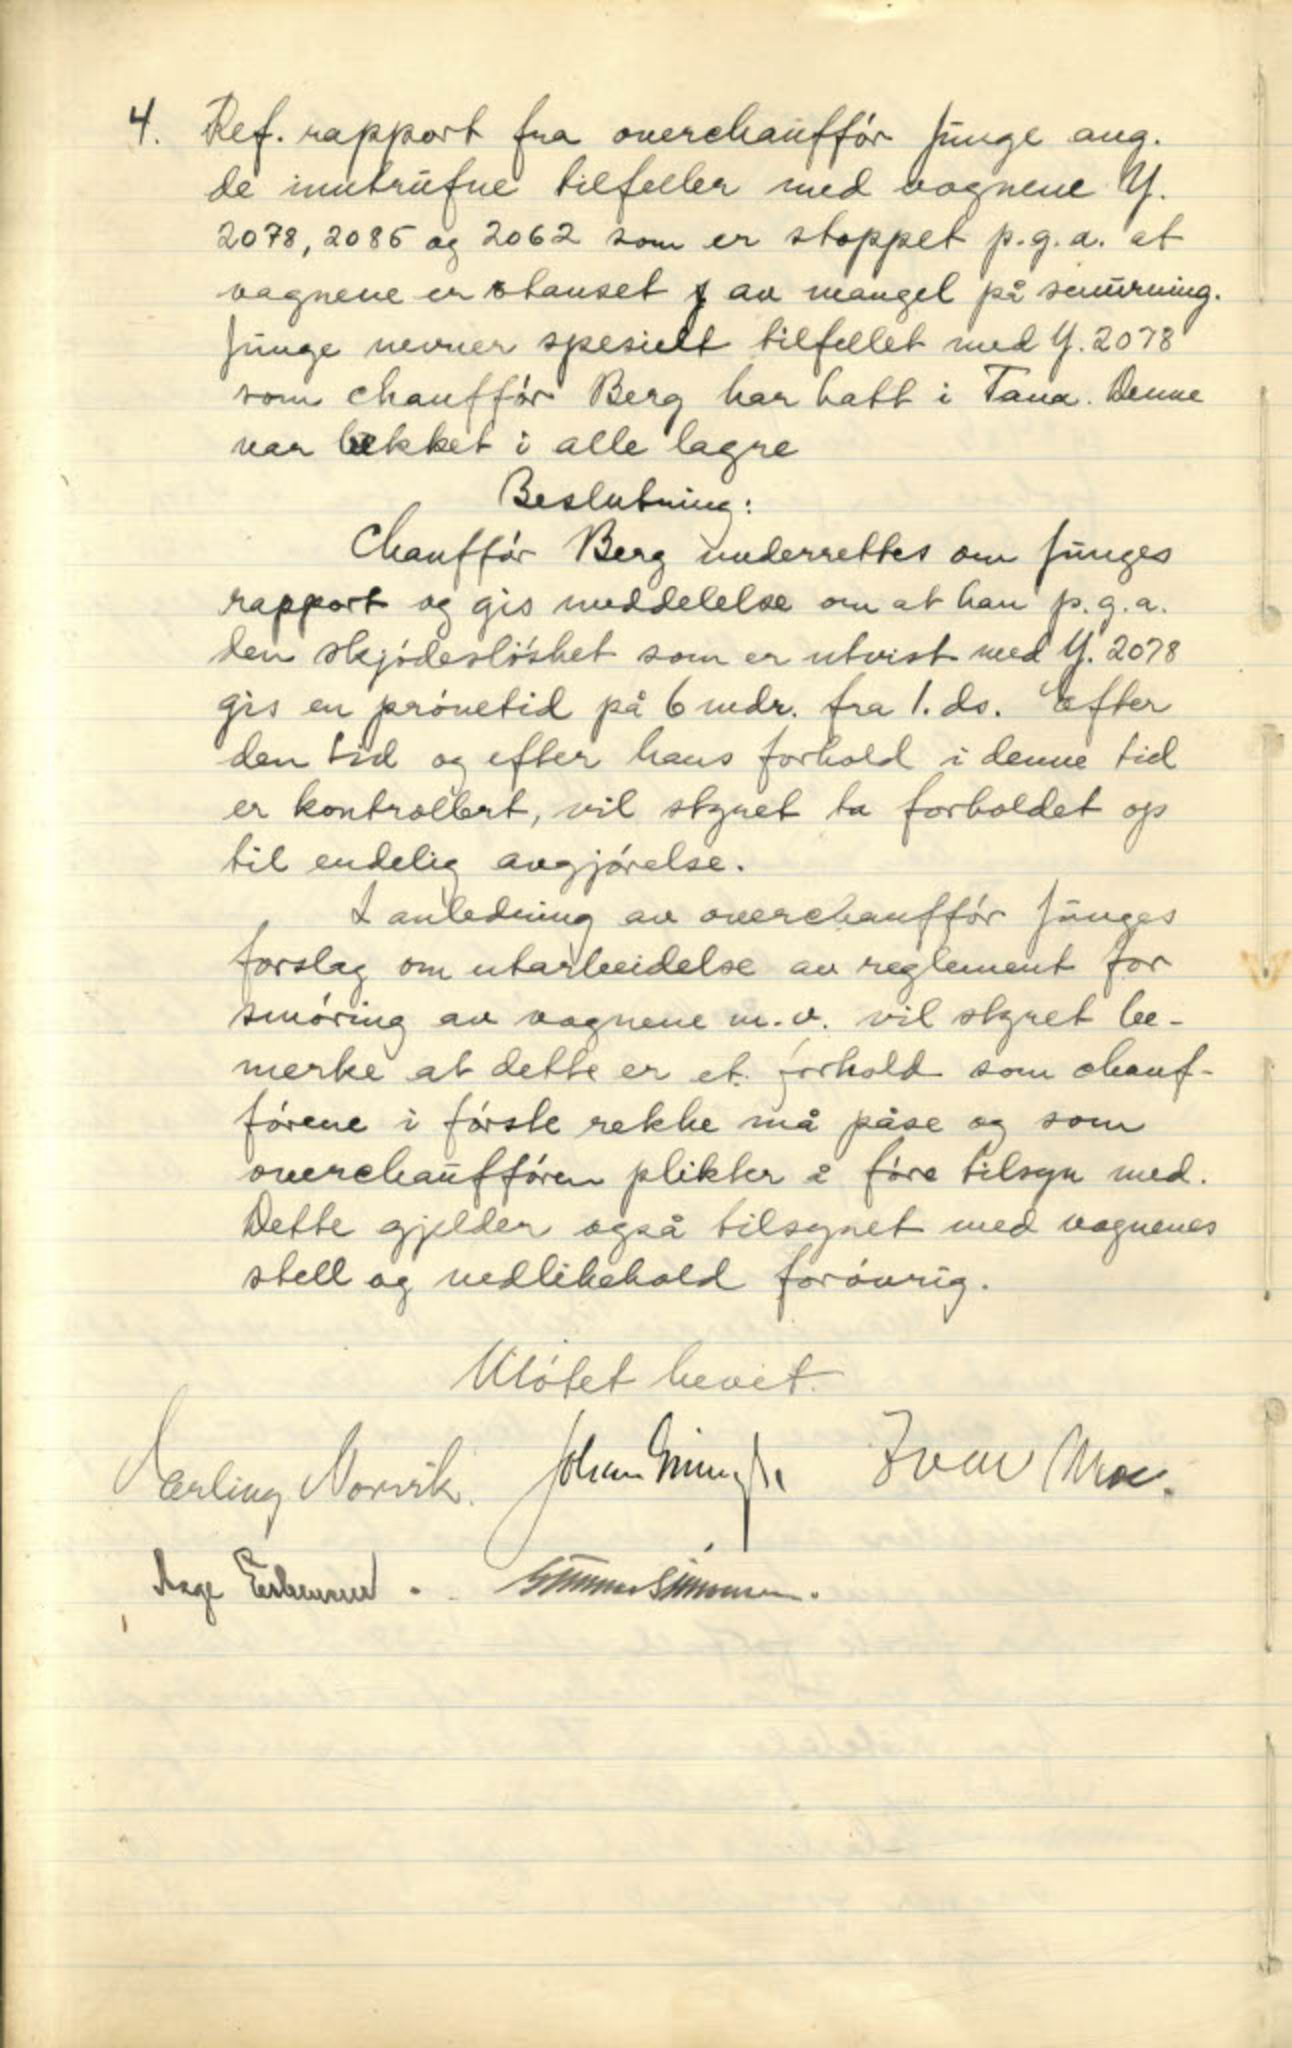 4. Ref. rapport fra overchauffør Junge ang.
de inntrufne tilfeller med vognene Y.
2078, 2085 og 2062 som er stoppet p.g.a. at
vagnene er stanset av mangel på smurning.
Junge nevner spesielt tilfellet med Y. 2078
som chauffør Berg har hatt i Tana. Denne
var lekket i alle lagre
Beslutning:
Chauffør Berg underrettes om Junges
rapport og gis meddelelse om at han p.g.a.
den skjødesløshet som er utvist med Y. 2078
gis en prøvetid på 6 mdr. fra 1. ds. Efter
den tid og efter hans forhold i denne tid
er kontrollert, vil styret ta forholdet op
til endelig avgjørelse.
I anledning av overchauffør Junges
forslag om utarbeidelse av reglement for
smøring av vognene m.v. vil styret be-
merke at dette er et forhold som chauf-
førene i første rekke må påse og som
overchaufføren plikter å føre tilsyn med.
Dette gjelder også tilsynet med vognenes
stell og vedlikehold forøvrig.
Møtet hevet.
Erling Norvik. Johan Ivar Moe.
Aage Gunnar Simonsen.